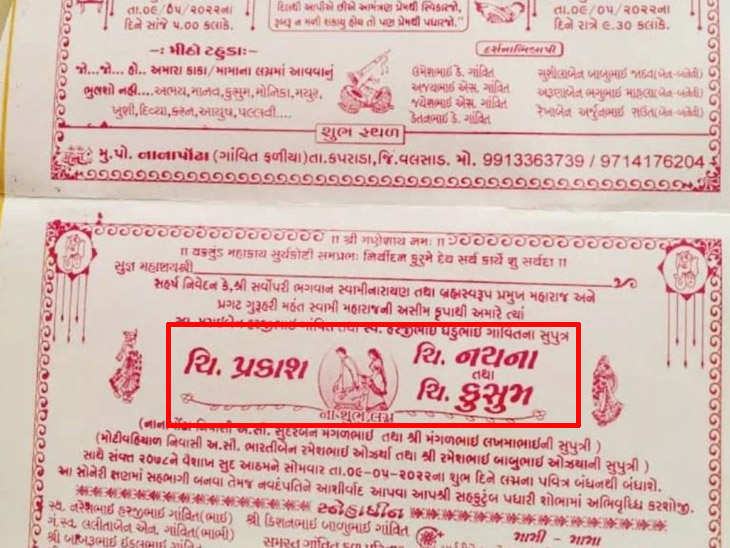 તા.૦૯/૦૫/૨૦૨૨ના
દિને સાંજે ૫.૦૦ કલાકે.
દિલથી આપીએ છીએ આમંત્રણ પ્રેમથી સ્વિકારજો,
રૂબરૂ ન મળી શકાયુ હોય તો પણ પ્રેમથી પધારજો."
તા.૦૯/૦૫/૨૦૨૨ના
દિને રાત્રે ૯.૩૦ કલાકે.
-: મીઠો ટહુકો :-
જો...જો... હો.. અમારા કાકા/મામાના લગ્નમાં આવવાનું
ભુલશો નહી....અભય,માનવ,કુસુમ,મોનિકા,મયુર,
ખુશી,દિવ્યા,કરન,આયુષ,પલ્લવી....
દર્શનાભિલાષી
ઉમેશભાઈ કે. ગાંવિત
અજયભાઈ એસ. ગાંવિત
જયેશભાઈ એસ. ગાંવિત
કેતનભાઈ કે. ગાંવિત
સુશીલાબેન બાબુભાઈ જાદવ(બેન-બનેવી)
અરૂણાબેન ભગુભાઈ માહલા(બેન-બનેવી)
રેખાબેન અર્જુનભાઈ રાઉત(બેન-બનેવી)
શુભ સ્થળ
મુ.પો. નાનાપોંઢા (ગાંવિત ફળીયા)તા.કપરાડા,જિ.વલસાડ. મો. 9913363739 / 9714176204
।। શ્રી ગણેશાય નમઃ ।।
।। વક્રતુંડ મહાકાય સુર્યકોટી સમપ્રભઃ નિર્વીઘ્નં કુરુમે દેવ સર્વ કાર્યે શુ સર્વદા ।।
સુજ્ઞ મહાશયશ્રી
સહર્ષ નિવેદન કે,શ્રી સર્વોપરી ભગવાન સ્વામીનારાયણ તથા બ્રહ્મસ્વરૂપ પ્રમુખ મહારાજ અને
પ્રગટ ગુરૂહરી મહંત સ્વામી મહારાજની અસીમ કૃપાથી અમારે ત્યાં
હરજીભાઈ ગાંવિત તથા સ્વ. હરજીભાઈ ધેડુભાઈ ગાંવિતના સુપુત્ર
ચિ. પ્રકાશ
ચિ. નયના
તથા
ચિ. કુસુમ
ના-શુભ.લગ્ન
(નાનાપોંઢા નિવાસી અ.સૌ. સુદરબેન મંગળભાઈ તથા શ્રી મંગળભાઈ લખમાભાઈની સુપુત્રી )
(મોટીવહિયાળ નિવાસી અ.સૌ. ભારતીબેન રમેશભાઈ ઓઝર્યા તથા શ્રી રમેશભાઈ બાબુભાઈ ઓઝર્યાની સુપુત્રી )
સાથે સંવત ૨૦૭૮ને વૈશાખ સુદ આઠમને સોમવાર તા.૦૯-૦૫-૨૦૨૨ના શુભ દિને લગ્નના પવિત્ર બંધનથી બંધાશે.
આ સોનેરી ક્ષણમાં સહભાગી બનવા તેમજ નવદંપતિને આશીર્વાદ આપવા આપશ્રી સહકુટુંબ પધારી શોભામાં અભિવૃધ્ધિ કરશોજી.
સ્નેહાધીન
સ્વ. નરેશભાઈ હરજીભાઈ ગાંવિત(ભાઈ)
ગં.સ્વ. લલીતાબેન એન. ગાંવિત(ભાભી)
શ્રી બાબરૂભાઈ ઈડલભાઈ ગાંવિત
શ્રી કિશનભાઈ બાળુભાઈ ગાંવિત
સમસ્ત ગાંવિત કુળ પરિવાર
મામી - મામા